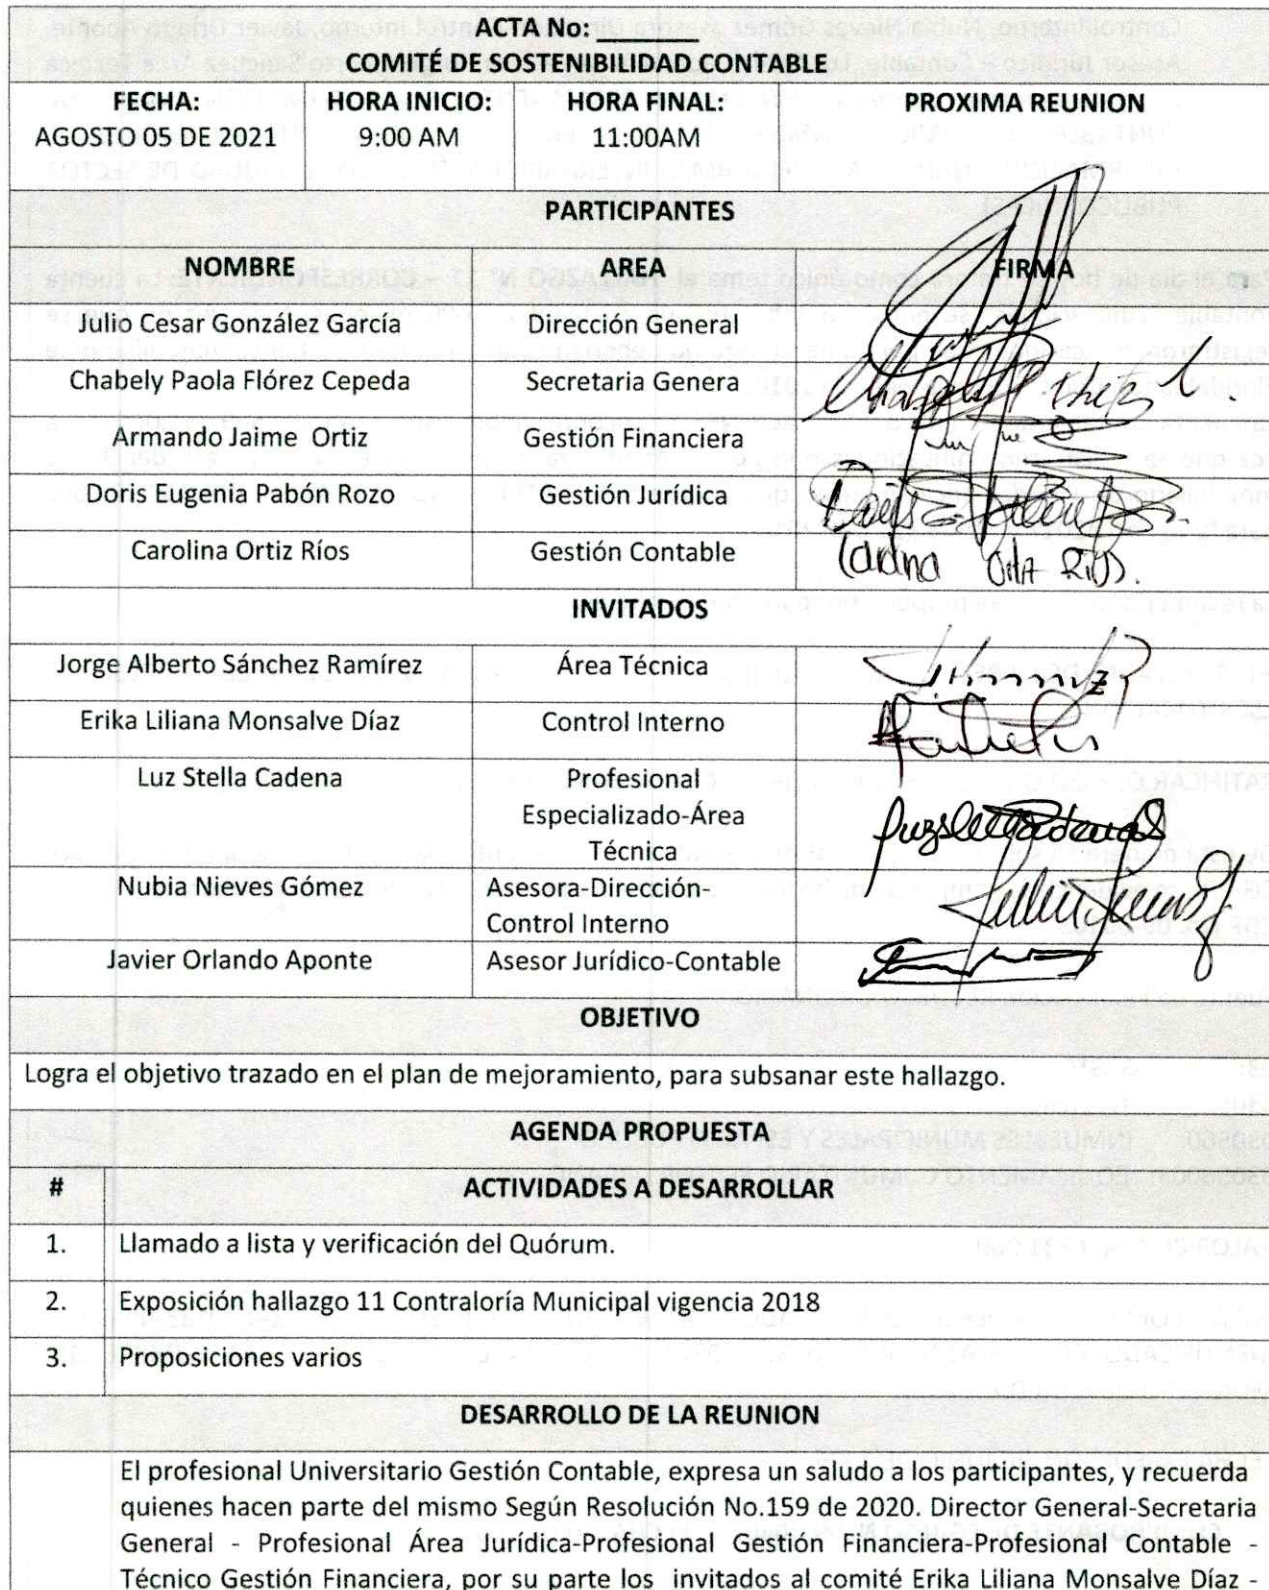 ACTA No: ________
COMITÉ DE SOSTENIBILIDAD CONTABLE
FECHA: HORA INICIO: HORA FINAL: PROXIMA REUNION
AGOSTO 05 DE 2021 9:00 AM 11:00AM
PARTICIPANTES
NOMBRE AREA FIRMA
Julio Cesar González García Dirección General
Chabely Paola Flórez Cepeda Secretaria Genera
Armando Jaime Ortiz Gestión Financiera
Doris Eugenia Pabón Rozo Gestión Jurídica
Carolina Ortiz Ríos Gestión Contable Carolina Ortiz Ríos.
INVITADOS
Jorge Alberto Sánchez Ramírez Área Técnica
Erika Liliana Monsalve Díaz Control Interno
Luz Stella Cadena Profesional
Especializado-Área
Técnica
Nubia Nieves Gómez Asesora-Dirección-
Control Interno
Javier Orlando Aponte Asesor Jurídico-Contable
OBJETIVO
Logra el objetivo trazado en el plan de mejoramiento, para subsanar este hallazgo.
AGENDA PROPUESTA
# ACTIVIDADES A DESARROLLAR
1. Llamado a lista y verificación del Quórum.
2. Exposición hallazgo 11 Contraloría Municipal vigencia 2018
3. Proposiciones varios
DESARROLLO DE LA REUNION
El profesional Universitario Gestión Contable, expresa un saludo a los participantes, y recuerda
quienes hacen parte del mismo Según Resolución No.159 de 2020. Director General-Secretaria
General - Profesional Área Jurídica-Profesional Gestión Financiera-Profesional Contable -
Técnico Gestión Financiera, por su parte los invitados al comité Erika Liliana Monsalve Díaz -